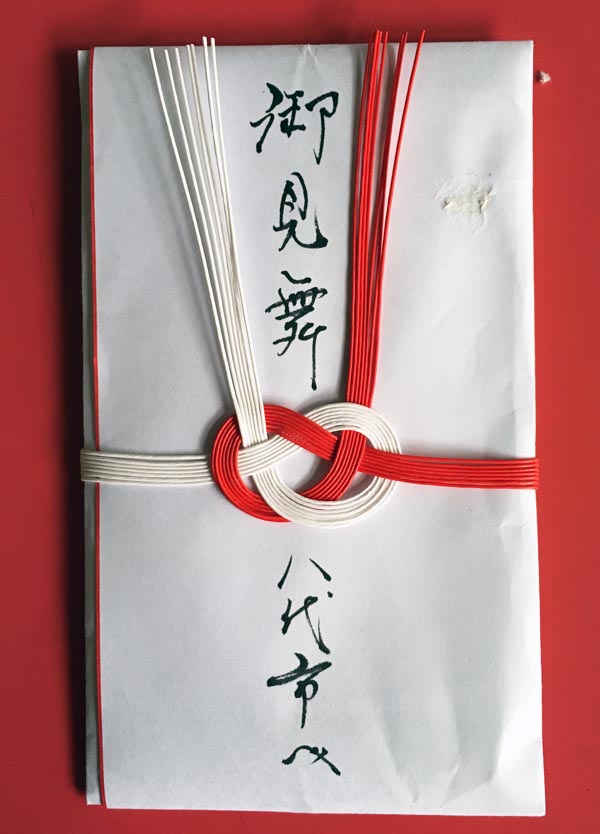 御見舞
八代市へ